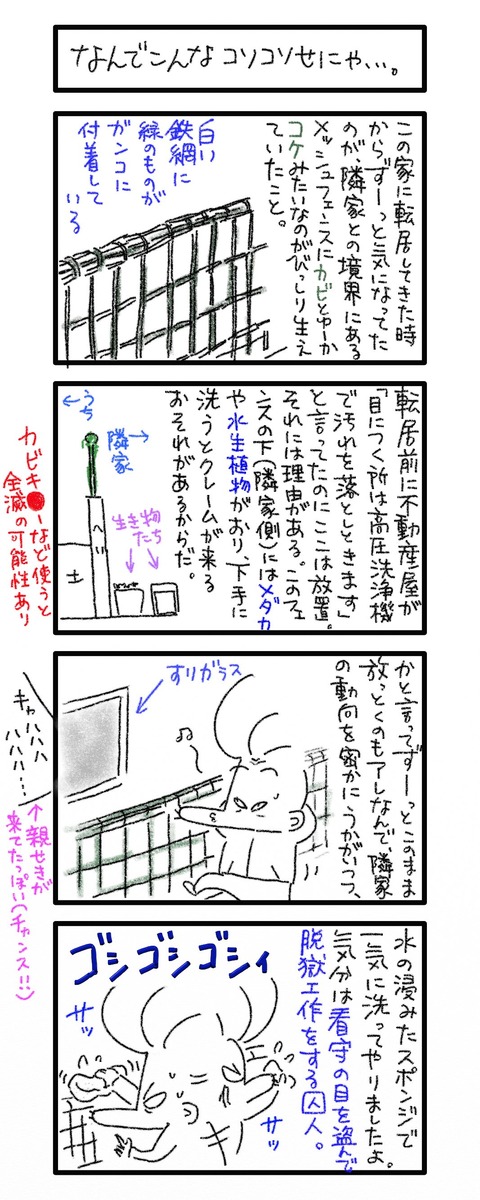 なんでこんなコソコソせにゃ…。
この家に転居してきた時
からずーっと気になってた
のが、隣家との境界にある
メッシュフェンスにカビとゆーか
コケみたいなのがびっしり生え
ていたこと。
白い
鉄網に
緑のものが
ガンコに
付着して
いる
転居前に不動産屋が
「目につく所は高圧洗浄機
で汚れを落としときます」
と言ってたのにここは放置。
それには理由がある。このフェ
ンスの下(隣家側)にはメダカ
や水生植物がおり、下手に
洗うとクレームが来る
おそれがあるからだ。
←うち
隣家→
へい
土
生き物たち
カビキ●ーなど使うと
全滅の可能性あり
かと言ってずーっとこのまま
放っとくのもアレなんで、隣家
の動向を密かにうかがいつつ、
すりガラス
♫
キャハハハ
ハハハ…
↑親せきが
来てたっぽい(チャンス!!)
水の浸みたスポンジで
一気に洗ってやりましたよ。
気分は看守の目を盗んで
脱獄工作をする囚人。
ゴシゴシゴシィ
サッ
サッ